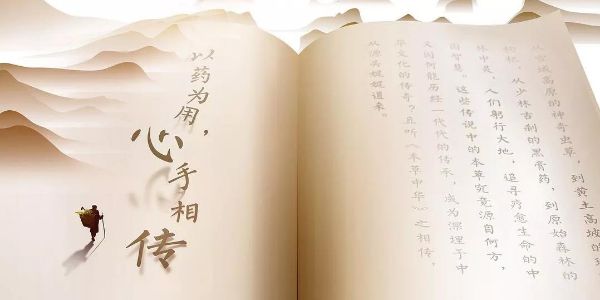 以药为用，
心手相传
从雪域高原的神奇虫草，到黄土高坡的
枸杞，从少林古刹的黑膏药，到原始森林的
林中灵，人们躬行大地，追寻疗愈生命的中
国智慧。这些传说中的本草究竟源自何方，
又因何能历经一代代的传承，成为深埋于中
华文化的传奇？且听《本草中华》心之相传，
从源头娓娓道来。